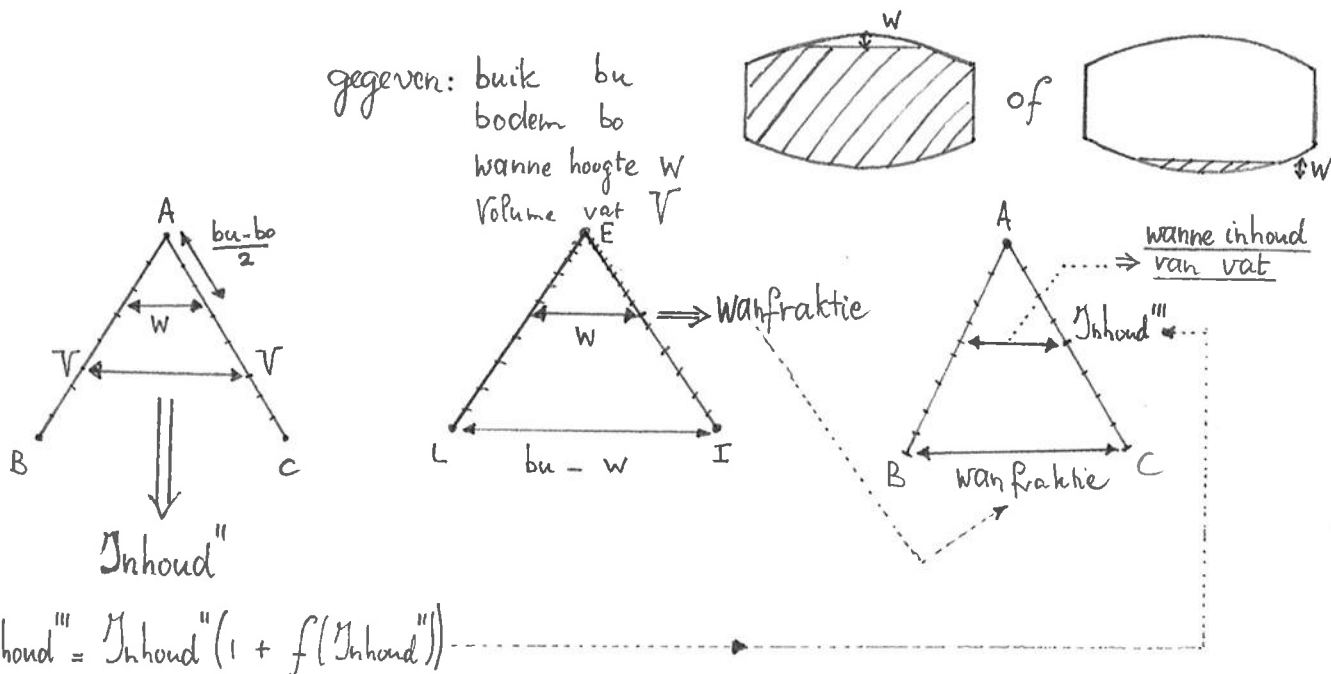 W
gegeven: buik bu
bodem bo
wanne hoogte W
Volume vat V
of
W
A
bu-bo
2
W
V
V
B
C
Inhoud"
houd"' = Inhoud"(1 + f(Inhoud"))
E
W
wanfraktie
L
bu - W
I
A
wanne inhoud
van vat
Inhoud"'
B
wanfraktie
C